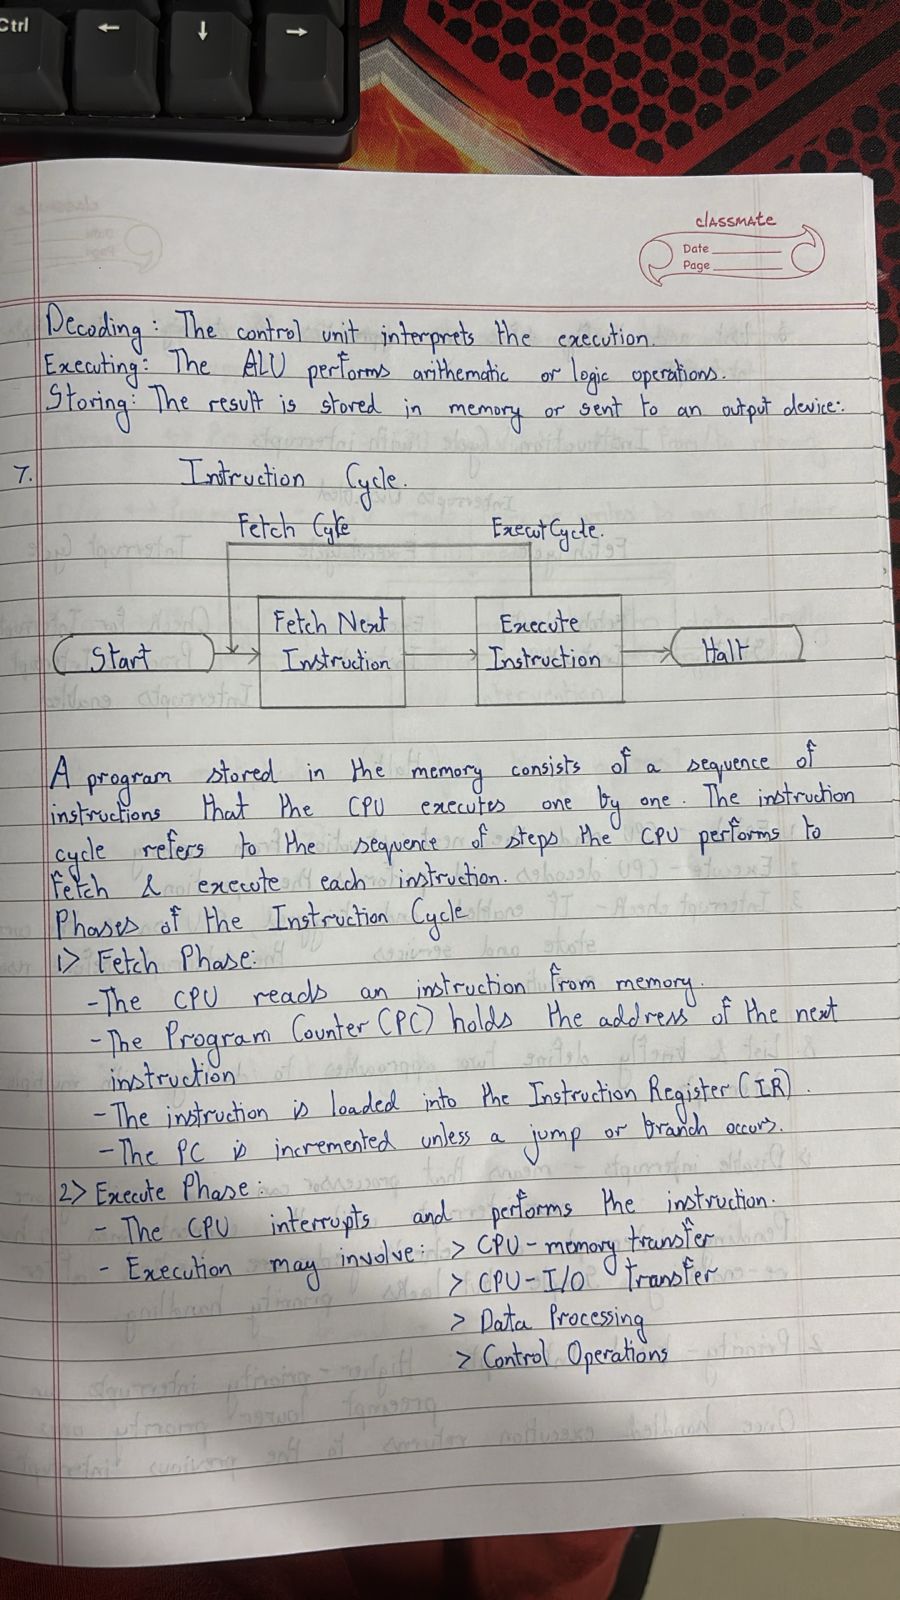 Ctrl
←
↓
→
classmate
Date
Page
Decoding: The control unit interprets the execution.
Executing: The ALU performs arithematic or logic operations.
Storing: The result is stored in memory or sent to an output device:.
7. Intruction Cycle.
Fetch Cycle Execut Cycle.
Start
Fetch Next
Instruction
Execute
Instruction
Halt
A program stored in the memory consists of a sequence of
instructions that the CPU executes one by one. The instruction
cycle refers to the sequence of steps the CPU performs to
fetch & execute each instruction.
Phases of the Instruction Cycle
1> Fetch Phase:
- The CPU reads an instruction from memory.
- The Program Counter (PC) holds the address of the next
instruction
- The instruction is loaded into the Instruction Register (IR).
- The PC is incremented unless a jump or branch occurs.
2> Execute Phase:
- The CPU interrupts and performs the instruction.
- Execution may involve: > CPU - memory transfer
> CPU - I/O transfer
> Data Processing
> Control Operations